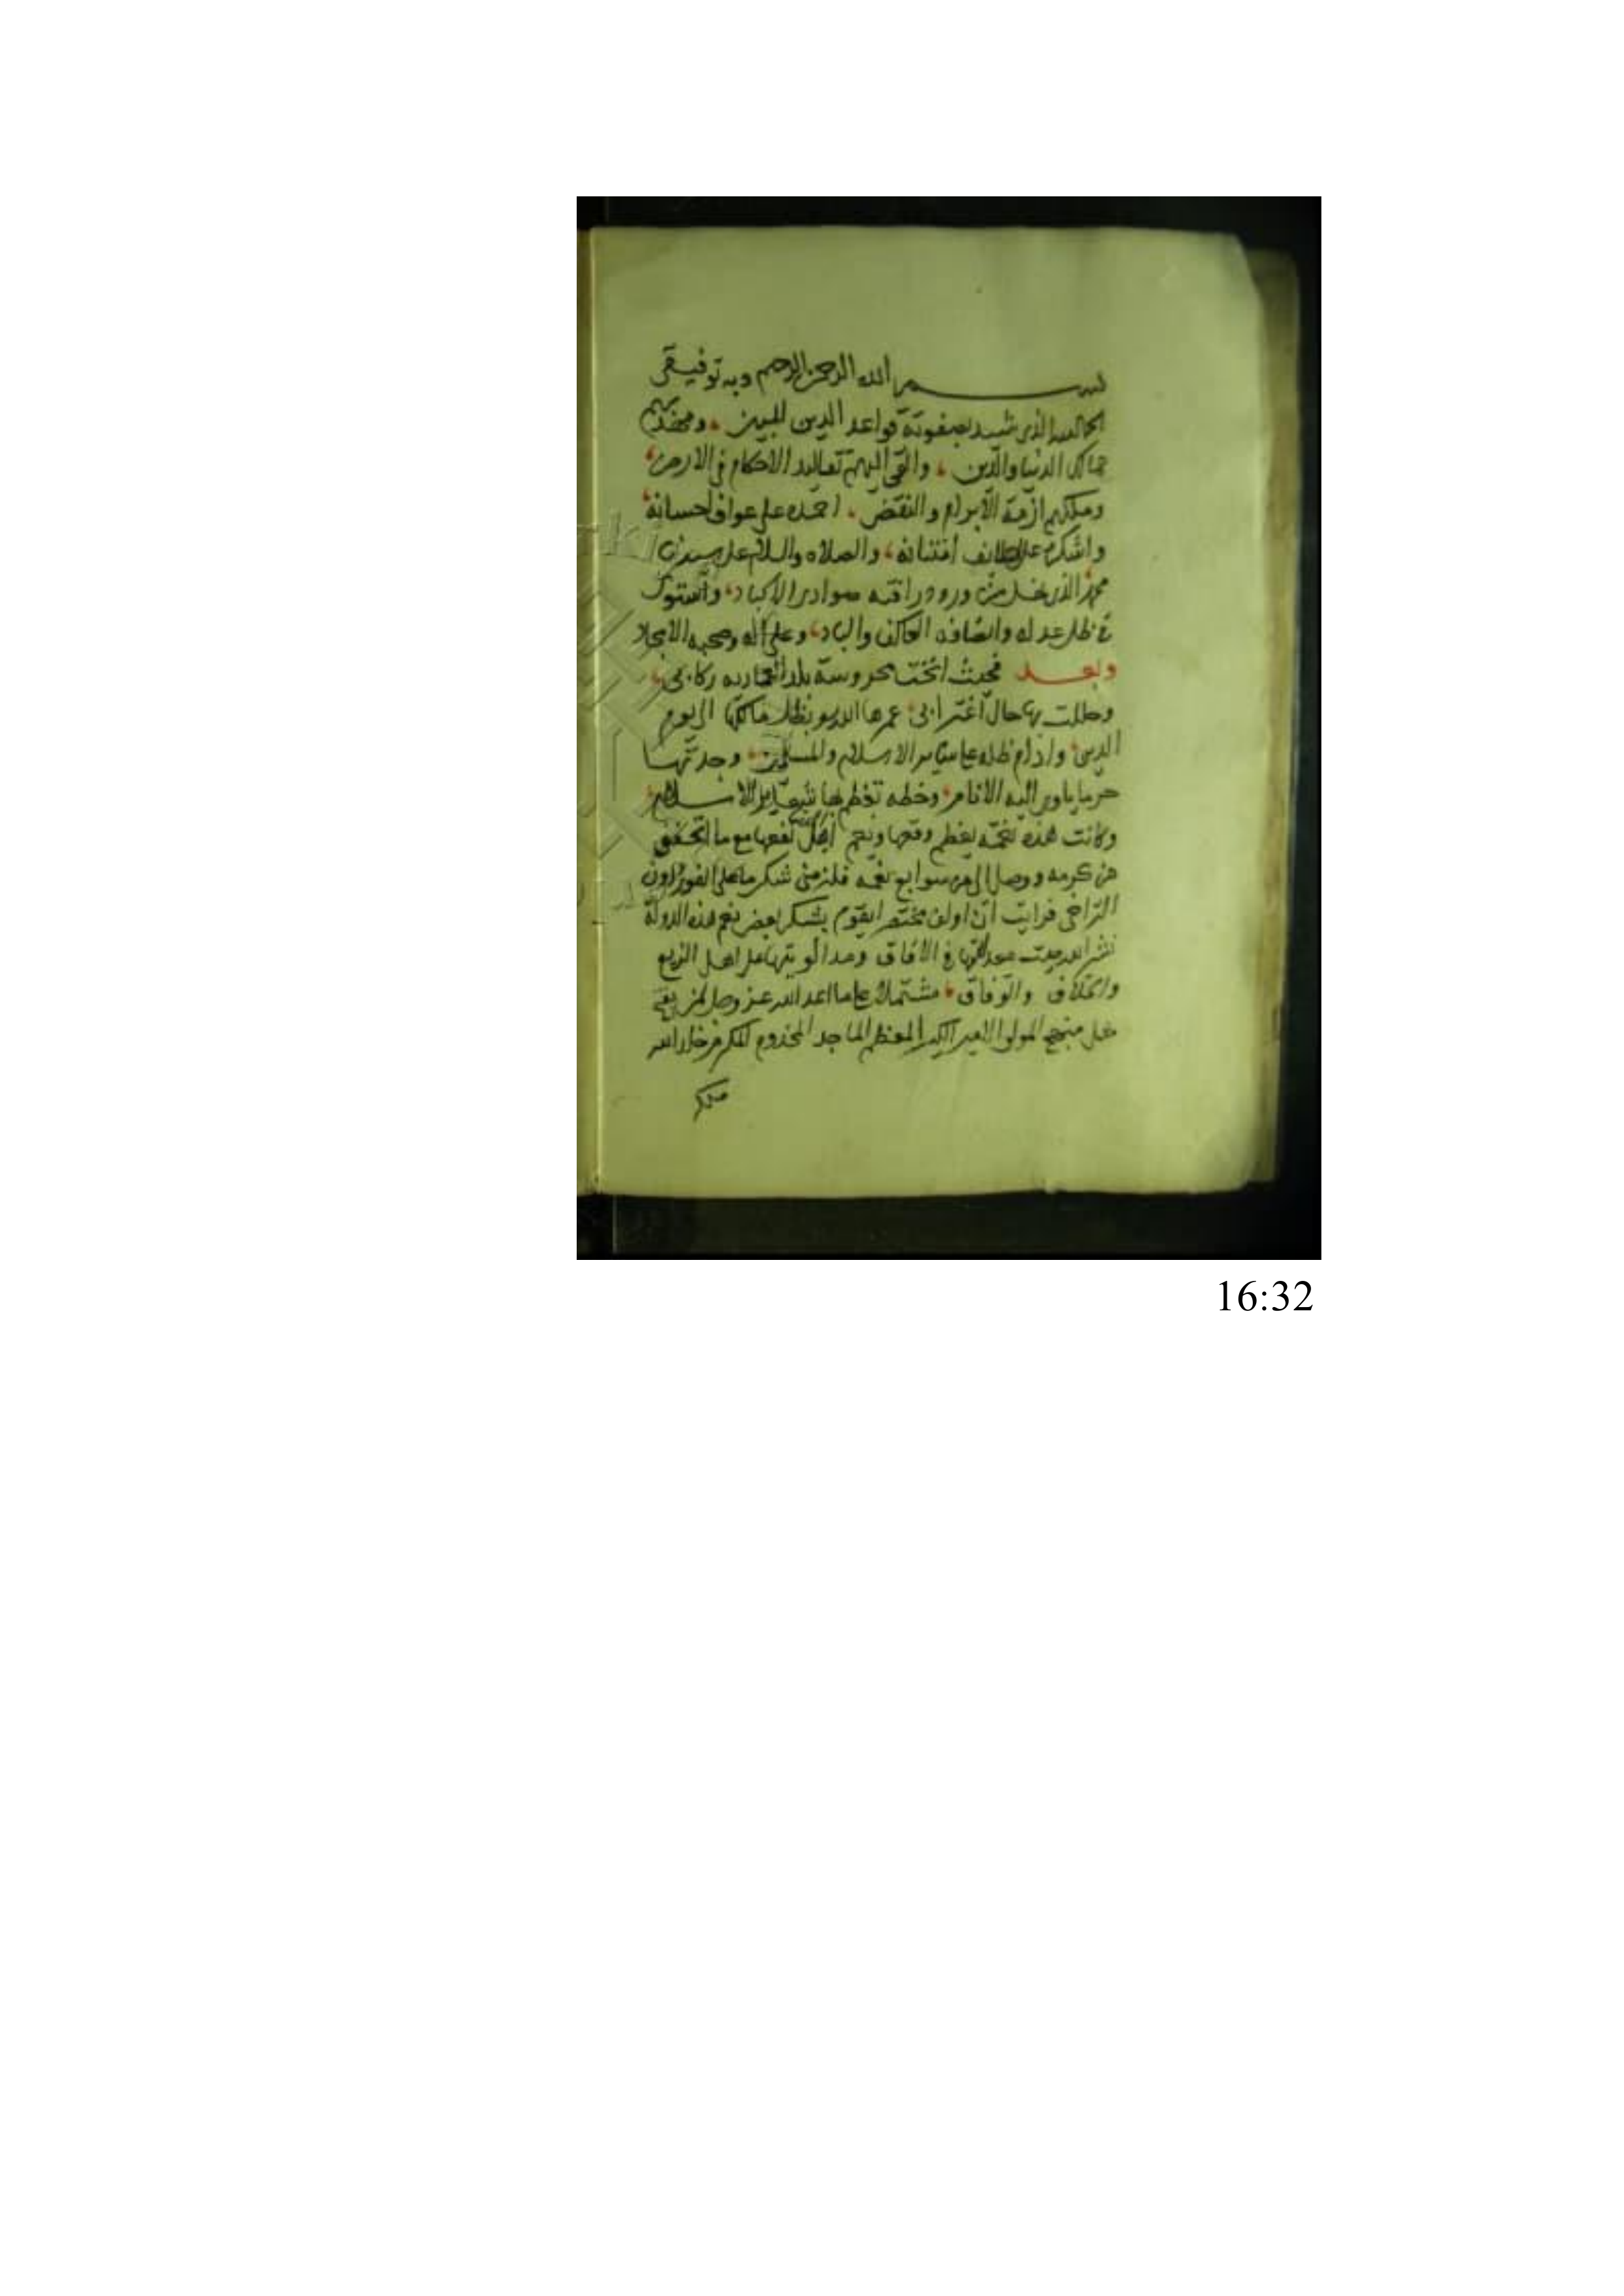 بسم الله الرحمن الرحيم وبه توفيقي
الحمد لله الذي شيد بصفوته قواعد الدين المبين ومهد بهم
ممالك الدنيا والدين والقى اليهم تقاليد الاحكام في الارض
وملكهم ازمة الابرام والنقض احمده على عوارف احسانه
واشكره على لطائف امتنانه والصلاه والسلام على سيدنا
محمد الذي نهل من ورود رافته صوادي الاكباد واستوى
في ظل عدله وانصافه العاكف والباد وعلى اله وصحبه الامجاد
وبعد فحيث انخت بمحروسة بلد العمادیه ركابي
وحللت بها حال اغترابي عمرها الله بظل مالكها الى يوم
الدين وادام ظله على ساير الاسلام والمسلمين وجدتها
حرما ياوي اليه الانام وخطه تعظم بها شعاير الاسلام
وكانت هذه نعمه يعظم وقعها ويعم نفعها مع ما اتحفني
من كرمه ووصل الي من سوابع نعمه فلزمني شكرها على الفور دون
التراخي فرايت ان اولف مختصرا يقوم بشكر بعض نعم هذه الدولة
نشر الله معدلتها في الافاق ومد الويتها على اهل الزيغ
والخلاف والوفاق مشتملا على ما اعد الله عز وجل لمن
على منهج المولى الامير الكبير المعظم الماجد المخدوم المكرم خلد الله
ملكه
16:32